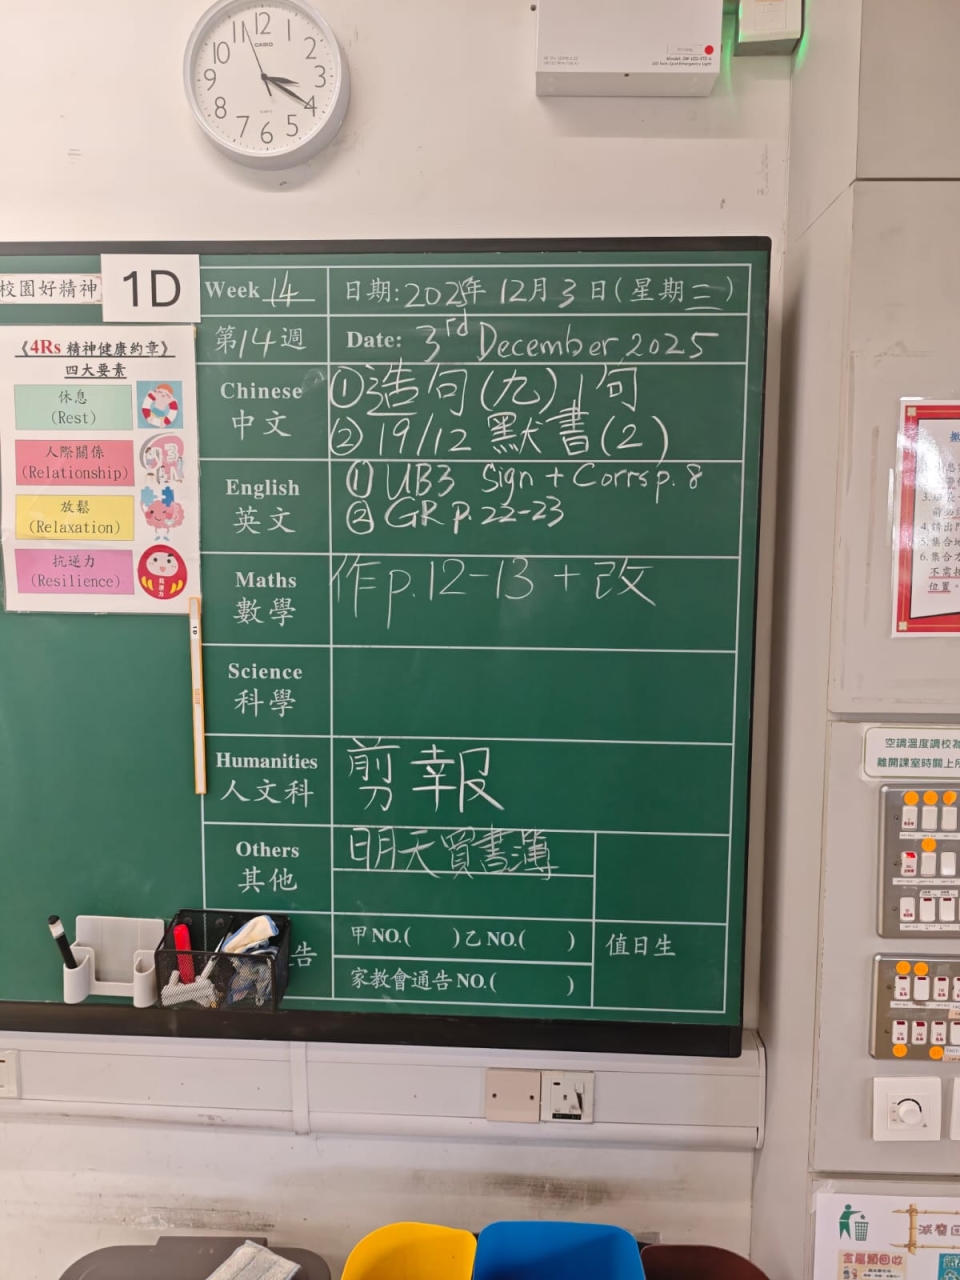 12 1 2 3 4 5 6 7 8 9 10 11
CASIO
QUARTZ
校園好精神
1D
Week 14
日期:2025年 12月 3 日(星期三)
第14週
Date: 3rd December 2025
《4Rs 精神健康約章》
四大要素
休息
(Rest)
人際關係
(Relationship)
放鬆
(Relaxation)
抗逆力
(Resilience)
Chinese
中文
① 造句(九) 1句
② 19/12 默書(2)
English
英文
① UB3 Sign + Corrs p. 8
② GR p. 22-23
Maths
數學
作p.12-13 + 改
1D
Science
科學
Humanities
人文科
剪報
Others
其他
明天買書簿
告
甲 NO.( ) 乙 NO.( )
值日生
家教會通告 NO.( )
3.
4.
5. 集合
6. 集合
不需
位置。
空調溫度調校為
離開課室時關上所
減廢
金屬類回收